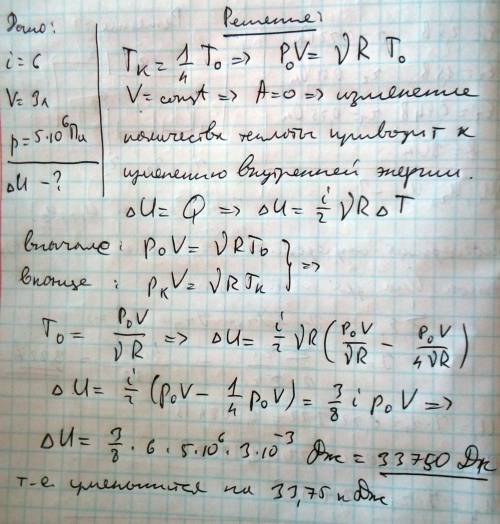 Дано:
i = 6
V = 3л
p = 5·10⁶Па
ΔU - ?
Решение:
Tк = 1/4 T₀ => P₀V = νRT₀
V = const => A = 0 => изменение
количества теплоты приводит к
изменению внутренней энергии.
ΔU = Q => ΔU = i/2 νRΔT
вначале: p₀V = νRT₀ } =>
в конце: pкV = νRTк
T₀ = p₀V/νR => ΔU = i/2 νR (p₀V/νR - p₀V/4νR)
ΔU = i/2 (p₀V - 1/4 p₀V) = 3/8 i p₀V =>
ΔU = 3/8 · 6 · 5·10⁶ · 3·10⁻³ Дж = 33750 Дж
т.е. уменьшится на 33,75 кДж